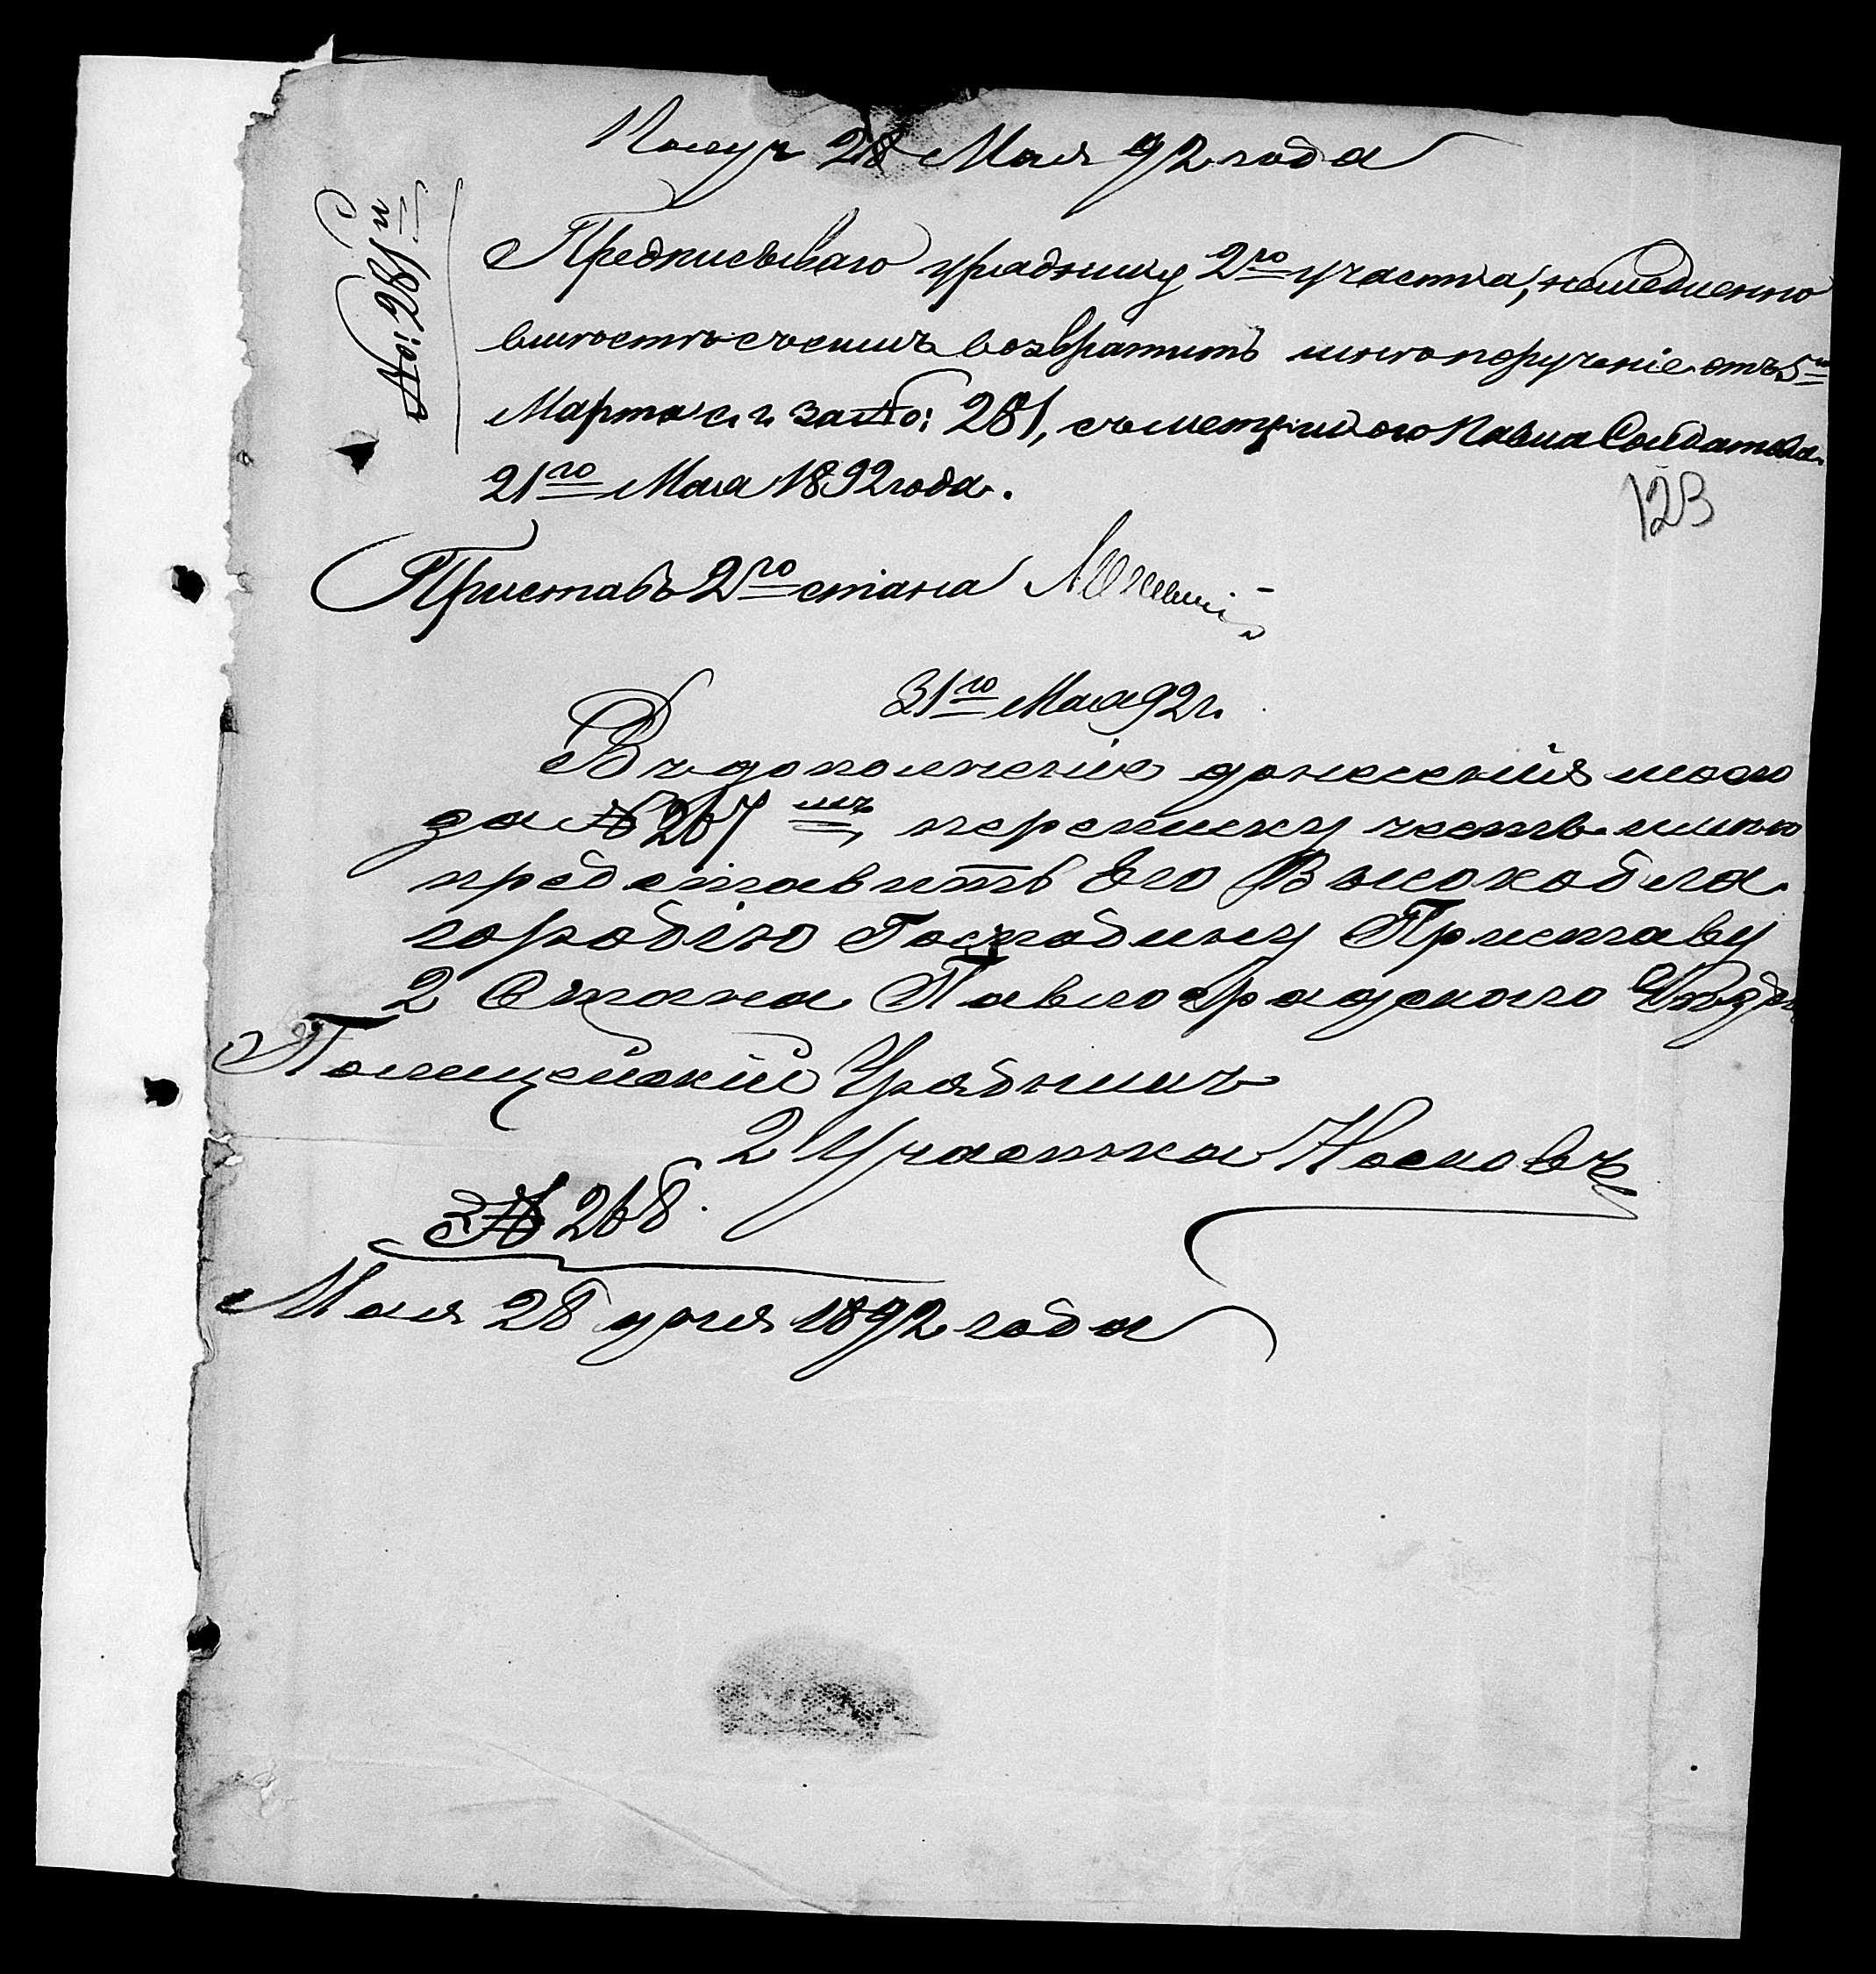 Получ 28 Мая 92 года
Предписываю уряднику 2го участка, немедленно
вместе съ симъ возвратить мне поручение отъ 5го
Марта с. г. за №о: 281, съ метрикою Павла Солдатова.
21го Мая 1892 года.
№о: 1862й
123
Приставъ 2го стана
31го Мая 92 г.
Въ дополнение донесения моего
за № 267мъ, переписку честь имею
представить Его Высокобла
городию Господину Приставу
2 Стана Павлоградского Уезда
Полицейский Урядникъ
2 Участка Носковъ
№ 268.
Мая 28 дня 1892 года